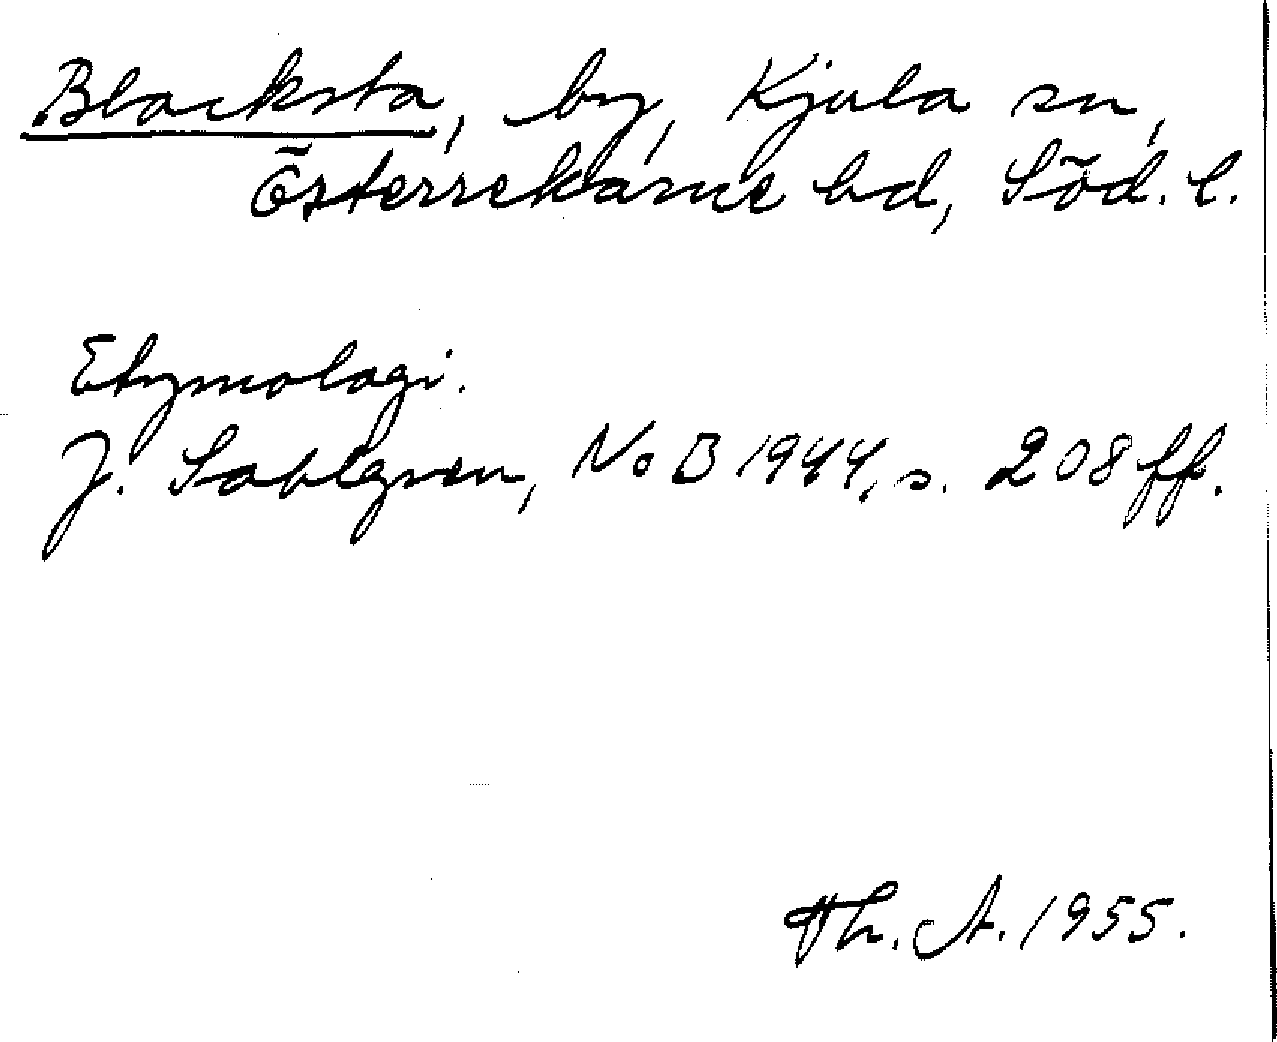 Blacksta, by, Kjula sn,
Österrekarne hd, Söd. l.
Etymologi.
J. Sahlgren, NoB 1944, s. 208 ff.
Th. A. 1955.